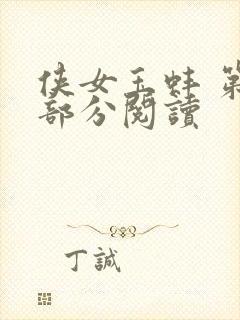 侠女玉蚌 第
部分閱讀
丁誠